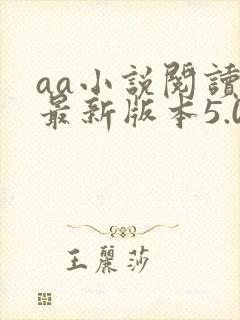 aa小說閱讀
最新版本5.0
王麗莎